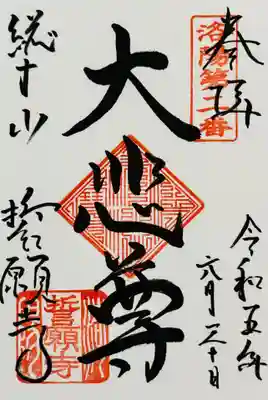 奉拝
洛陽第二番
大悲尊
令和五年
六月三十日
総本山
誓願寺
誓願寺